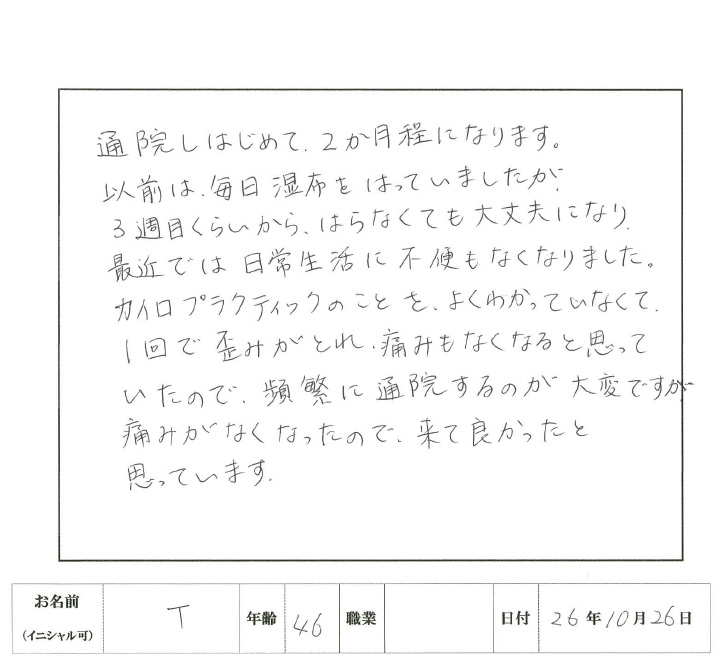 通院しはじめて、2か月程になります。
以前は、毎日湿布をはっていましたが、
3週目くらいから、はらなくても大丈夫になり、
最近では日常生活に不便もなくなりました。
カイロプラクティックのことを、よくわかっていなくて、
1回で歪みがとれ、痛みもなくなると思って
いたので、頻繁に通院するのが大変ですが
痛みがなくなったので、来て良かったと
思っています。
お名前 (イニシャル可) T 年齢 46 職業 日付 26年10月26日